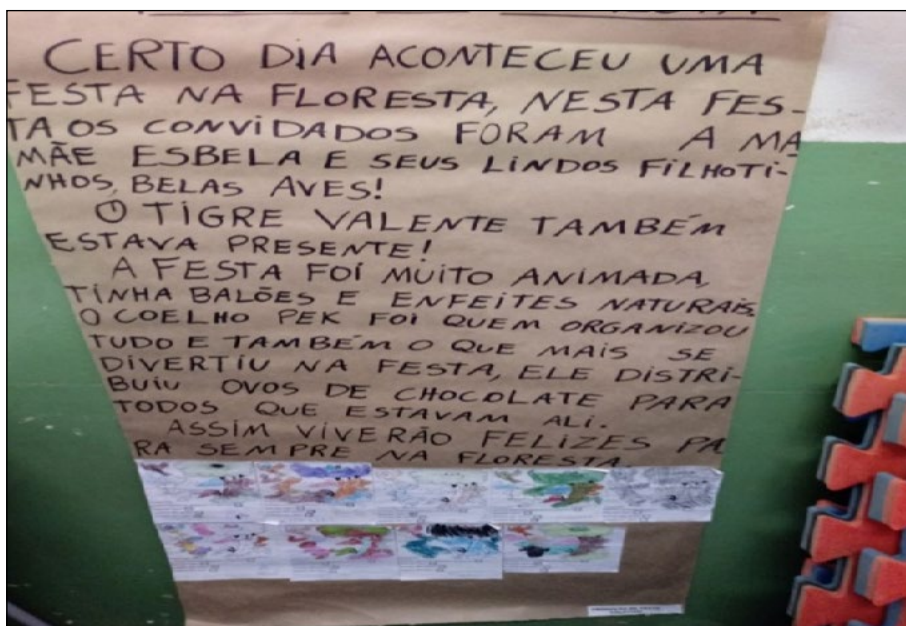 CERTO DIA ACONTECEU UMA
FESTA NA FLORESTA, NESTA FES-
TA OS CONVIDADOS FORAM A MA
MÃE ESBELA E SEUS LINDOS FILHOTI-
NHOS, BELAS AVES!
O TIGRE VALENTE TAMBÉM
ESTAVA PRESENTE!
A FESTA FOI MUITO ANIMADA,
TINHA BALÕES E ENFEITES NATURAIS.
O COELHO PEK FOI QUEM ORGANIZOU
TUDO E TAMBÉM O QUE MAIS SE
DIVERTIU NA FESTA, ELE DISTRI-
BUIU OVOS DE CHOCOLATE PARA
TODOS QUE ESTAVAM ALI.
ASSIM VIVERÃO FELIZES PA
RA SEMPRE NA FLORESTA.